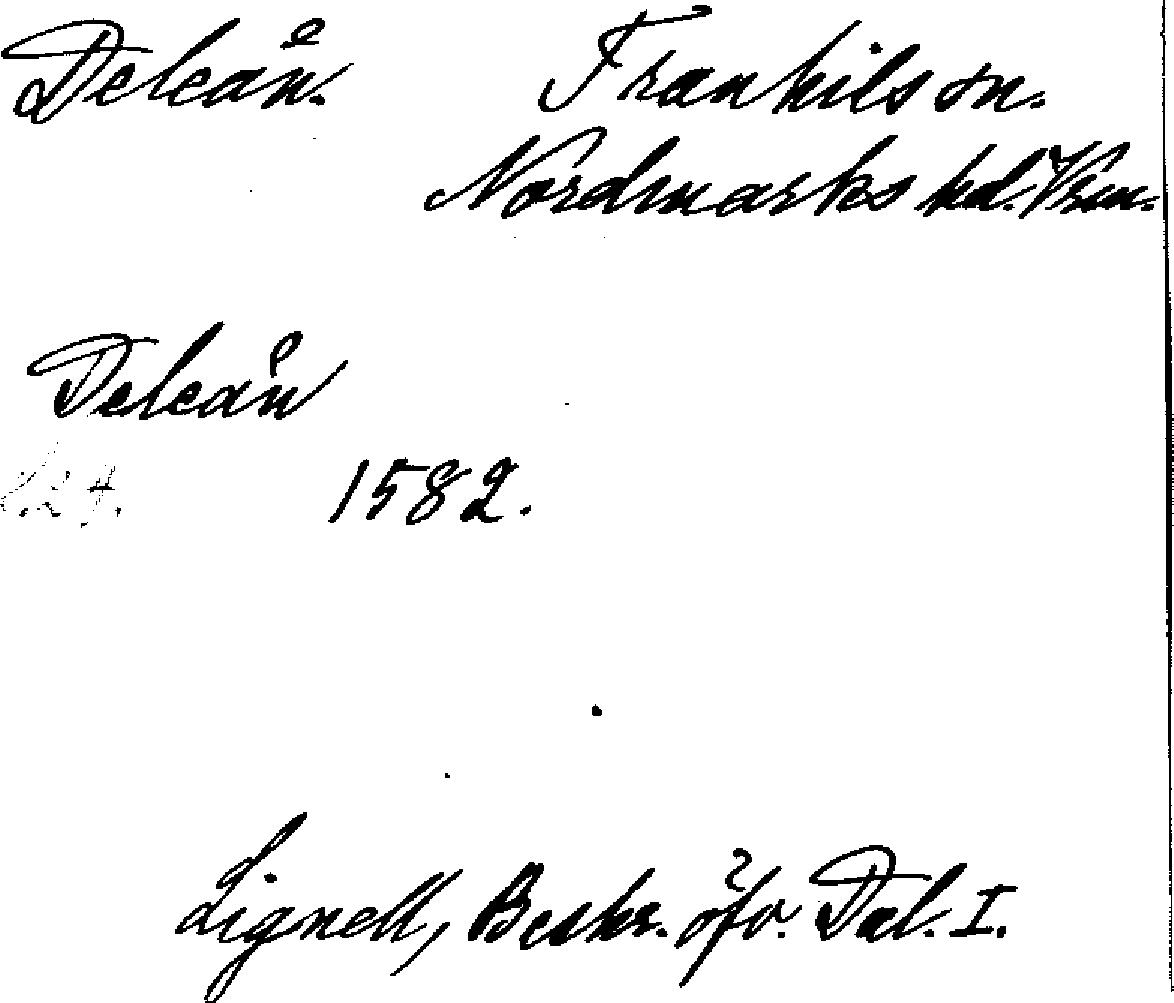 Deleån. Trankils sn.
Nordmarks hd. Vrm.
Deleån
1582.
Lignell, Beskr. öfv. Dal. I.